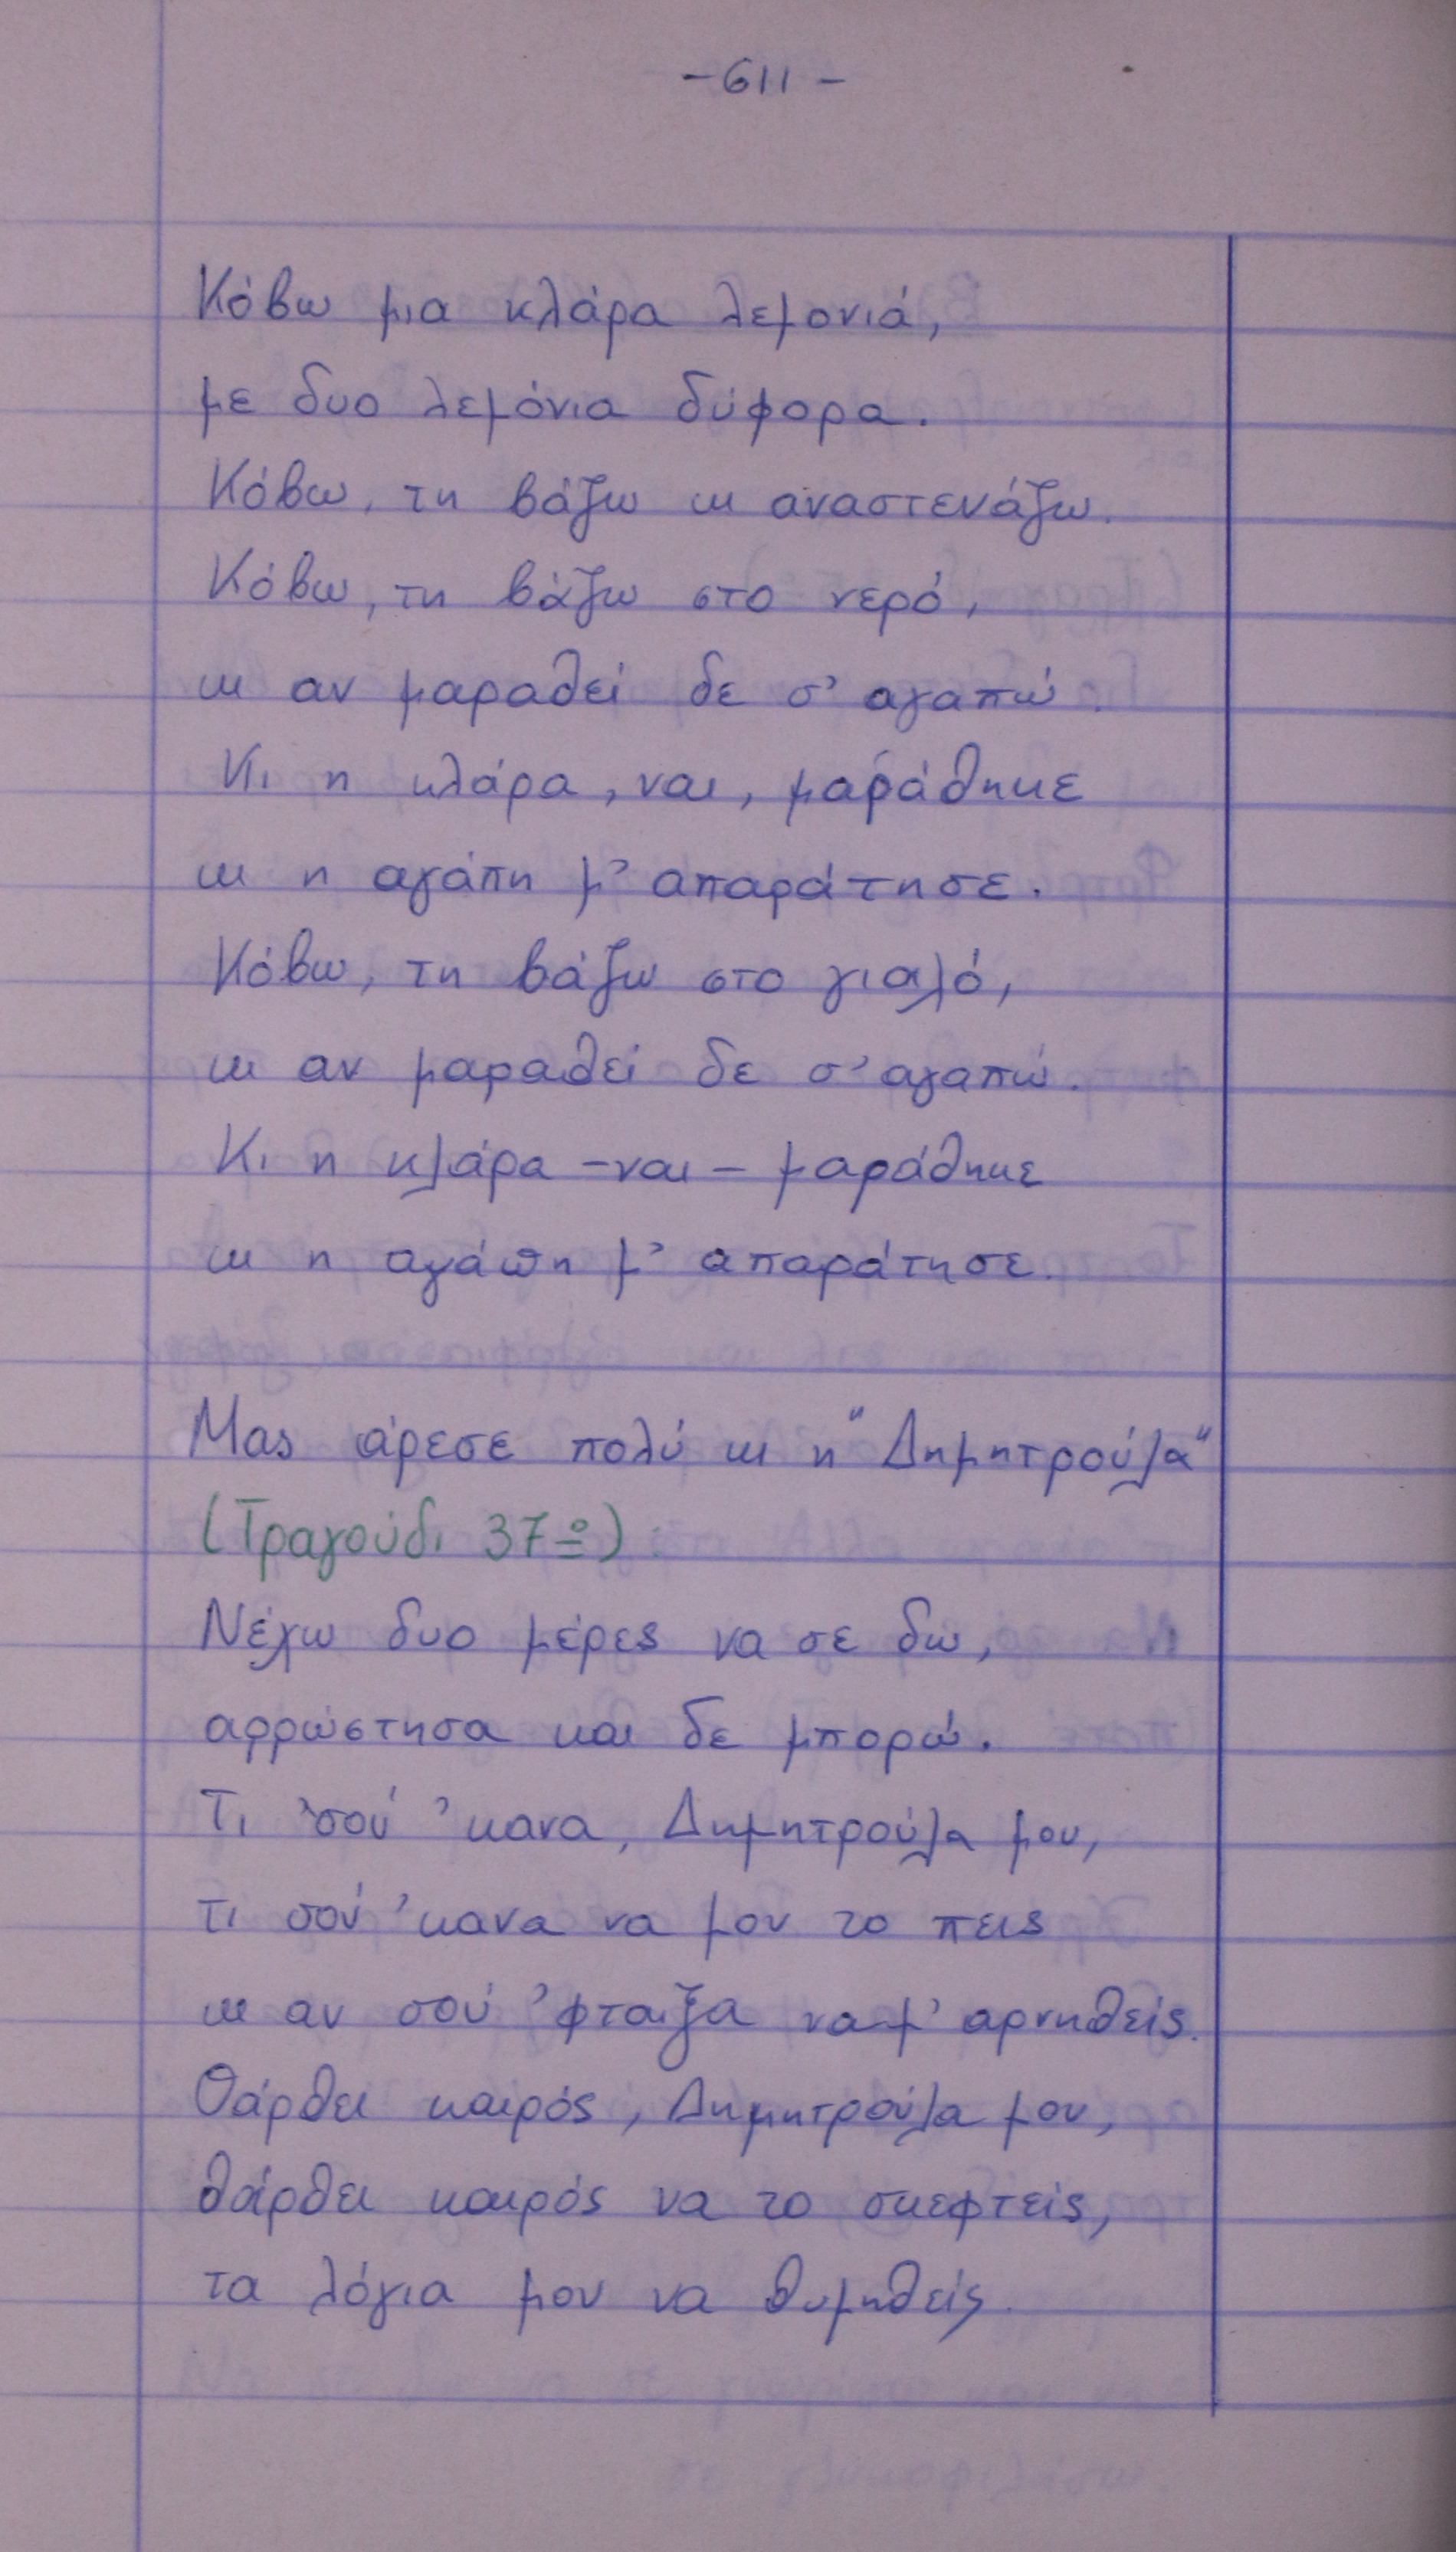 -611-
Κόβω μια κλάρα λεμονιά,
με δυο λεμόνια δύφορα.
Κόβω, τη βάζω κι αναστενάζω.
Κόβω, τη βάζω στο νερό,
κι αν μαραθεί δε σ' αγαπώ.
Κι η κλάρα, ναι, μαράθηκε
κι η αγάπη μ' απαράτησε.
Κόβω, τη βάζω στο γιαλό,
κι αν μαραθεί δε σ' αγαπώ.
Κι η κλάρα -ναι- μαράθηκε
κι η αγάπη μ' απαράτησε.
Μας άρεσε πολύ κι η "Δημητρούλα"
(Τραγούδι 37º):
Νέχω δυο μέρες να σε δω,
αρρώστησα και δε μπορώ.
Τι 'σού 'κανα, Δημητρούλα μου,
τι σού 'κανα να μου το πεις
κι αν σού 'φταιξα να μ' αρνηθείς.
Θάρθει καιρός, Δημητρούλα μου,
θάρθει καιρός να το σκεφτείς,
τα λόγια μου να θυμηθείς.